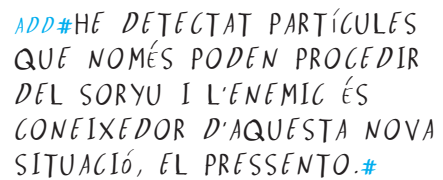 ADD#HE DETECTAT PARTÍCULES
QUE NOMÉS PODEN PROCEDIR
DEL SORYU I L'ENEMIC ÉS
CONEIXEDOR D'AQUESTA NOVA
SITUACIÓ, EL PRESSENTO.#